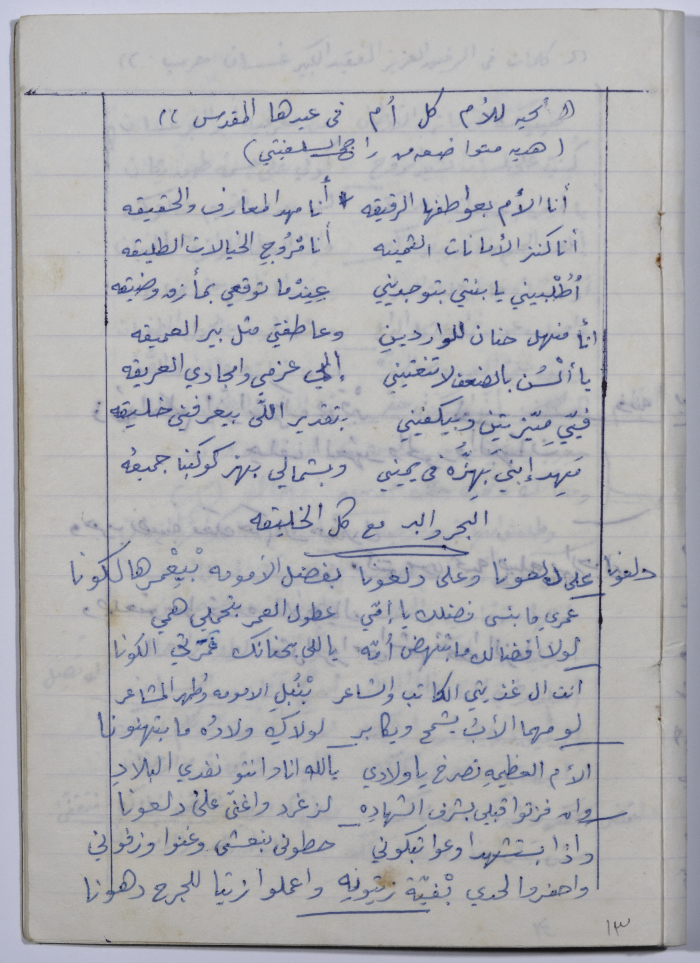 (( تحيه للأم كل أم في عيدها المقدس ))
( هديه متواضعه من راجح السلفيتي )
أنا الأم بعواطفها الرقيقه * أنا مهد المعارف والحقيقه
أنا كنز الأمانات الثمينه أنا مروج الخيالات الطليقه
أطلبيني يا بنتي بتوجديني عندما توقعي بمأزق وضيقه
انا منهل حنان للواردين وعاطفتي مثل بير العميقه
يا ألسن بالضعف لا تنعتيني إلي عزمي وامجادي العريقه
فيي ميزتين وبيكفيني بتقدير اللي بيعرفني خليقه
مهد إبني بهزه في يميني وبشمالي بهز كوكبنا جميعه
البحر والبر مع كل الخليقه
دلعونا على دلعونا وعلى دلعونا بفضل الأمومه بيعمرها لكونا
عمري ما بنسى فضلك يا إمي عطول العمر بتحملي همي
لولا أفضالك ما بتنهض أمه ياللي بحنانك غمرتي الكونا
انت ال غذيتي الكاتب والشاعر بنبل الامومه وطهر المشاعر
لو مهما الأب يشمخ ويكابر لولاك ولاده ما بتهنونا
الأم العظيمه تصرخ يا ولادي يالله انا وانتو نفدي البلاد
وان فزتوا قبلي بشرف الشهاده لزغرد واغني على دلعونا
واذا بستشهد اوعوا تبكوني حطوني بنعشي وغنوا وزفوني
واحفروا لحدي بفية زيتونه واعملوا زيتها للجرح دهونا
١٣